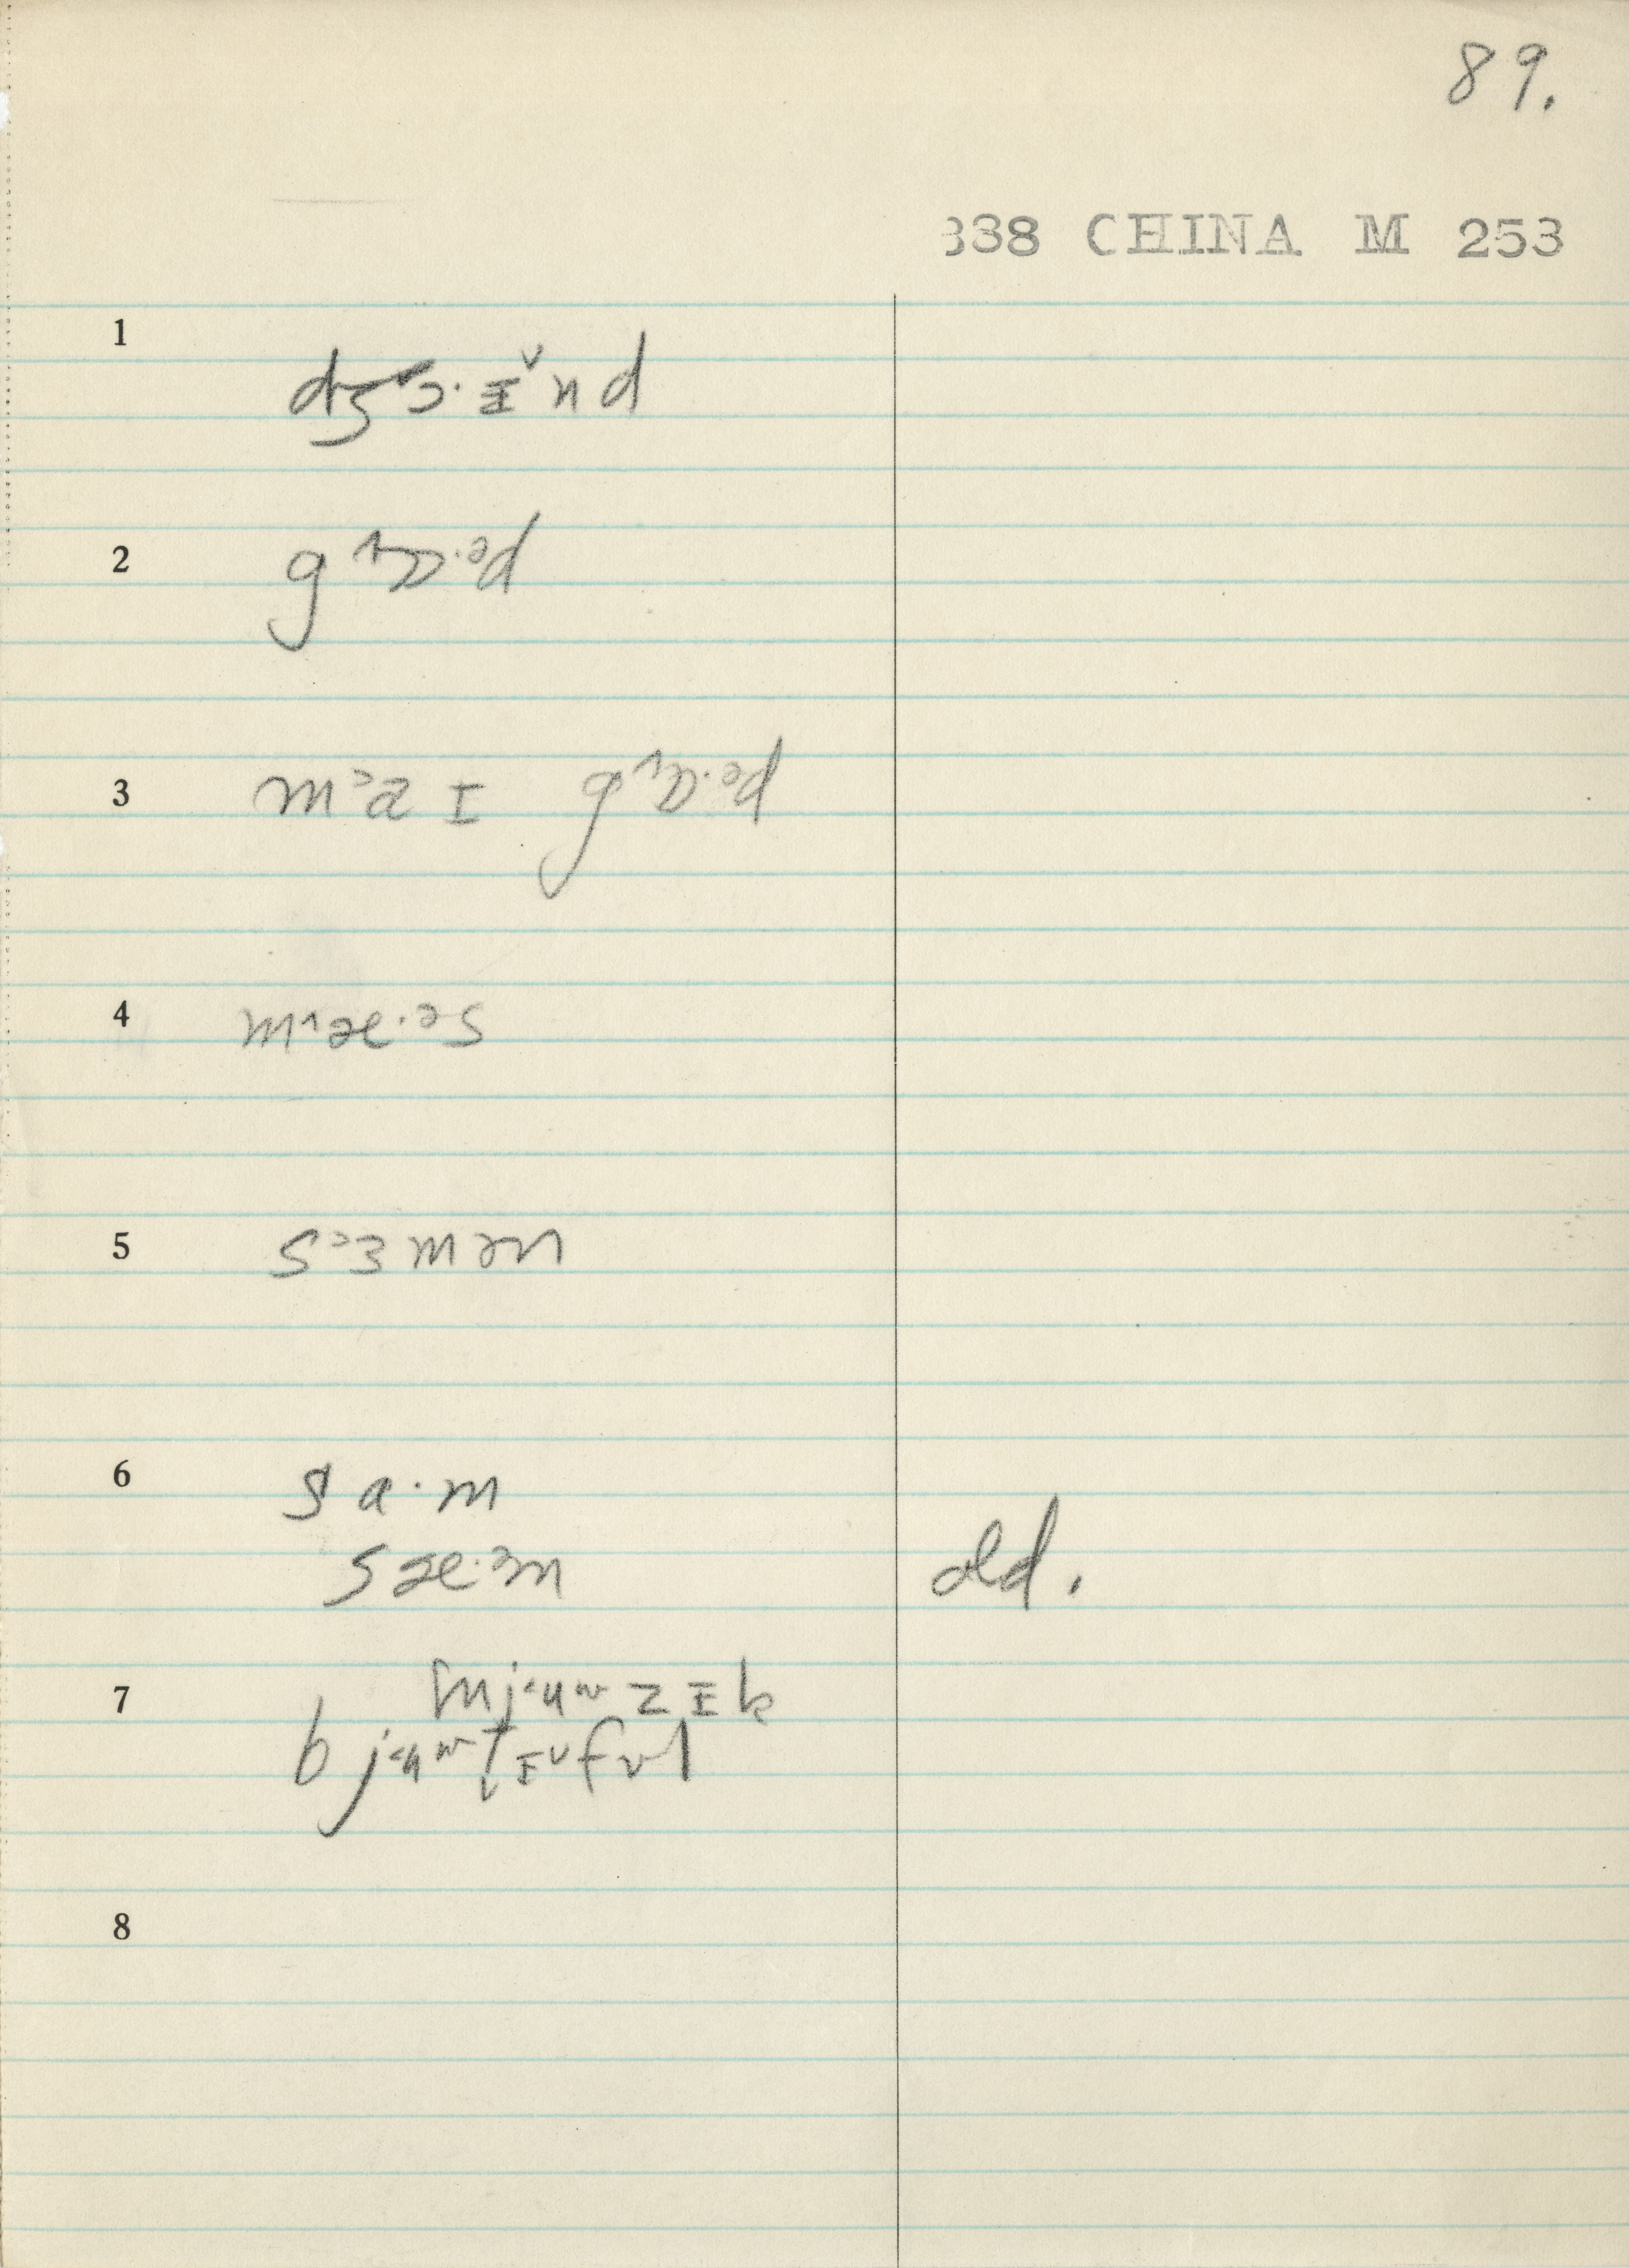 89.
338 CHINA M 253
1 dʒɔ·ɪ̵̌nd
2 g˄ɒ·ᵊd
3 m˃aɪ g˄ɒ·ᵊd
4 m˄æ·ᵊs
5 s˃ɜmən
6 sa·m
sæ·ᵊm old.
7 mj˂uʷzɪ̵k
bj˂uʷt̬ɪ̵ˇfʋl
8